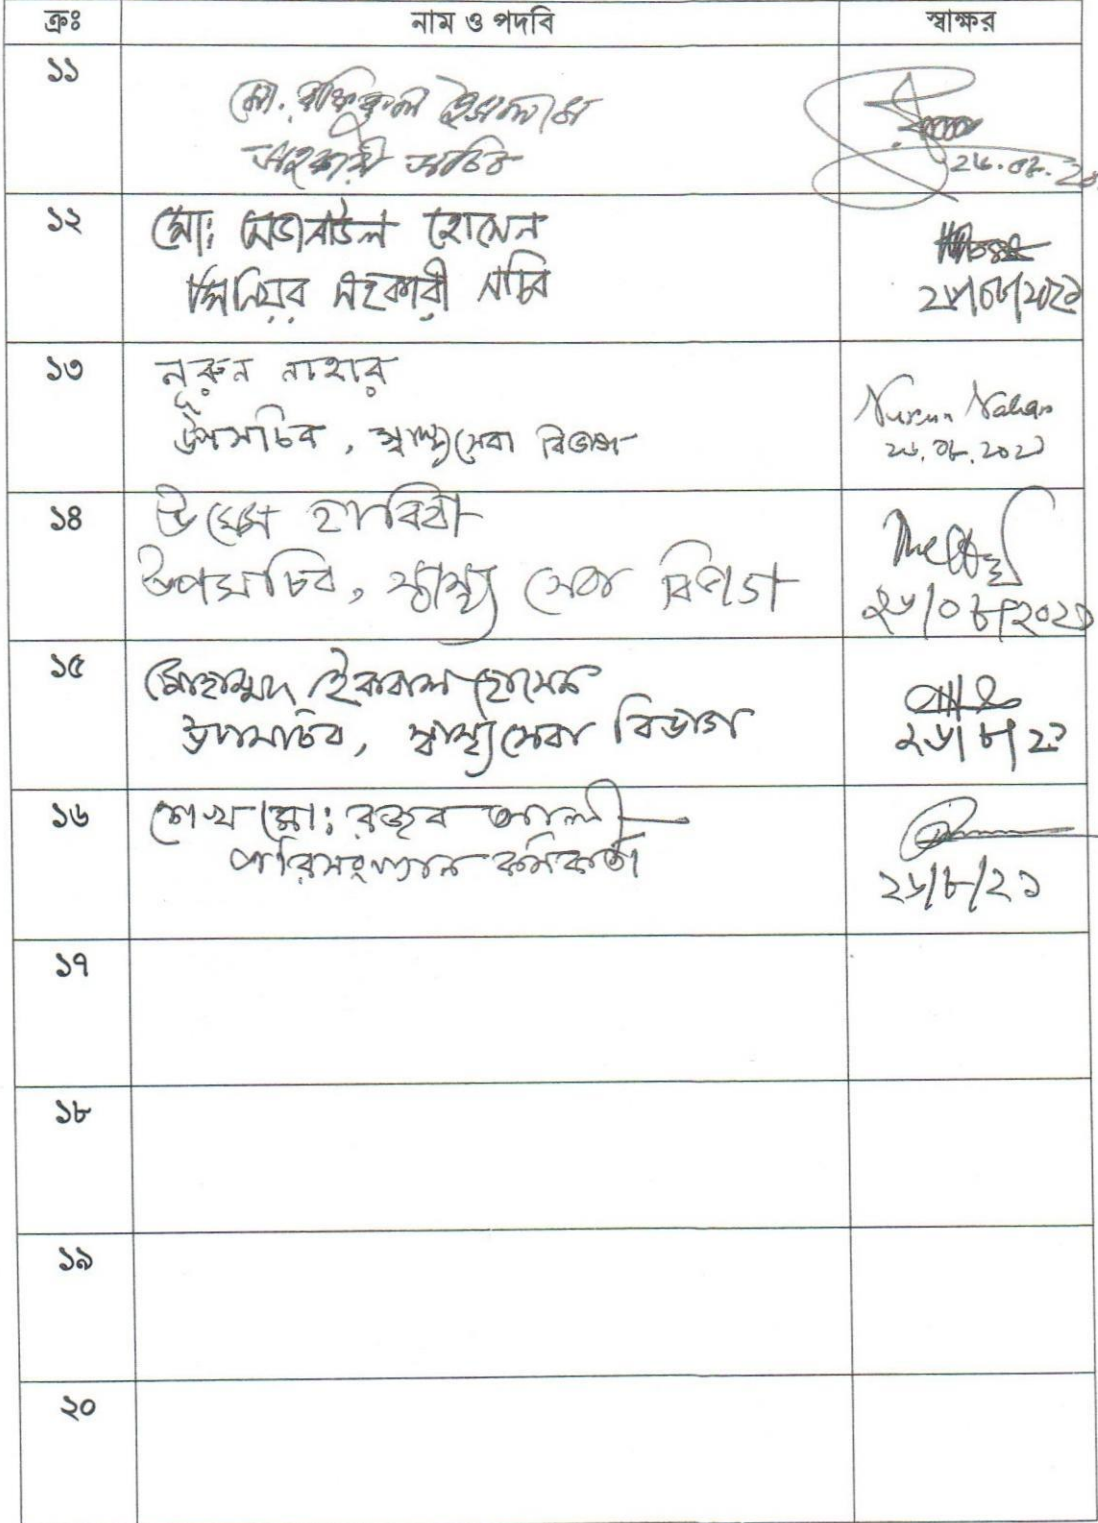 ক্রঃ নাম ও পদবি স্বাক্ষর
১১
মো. রফিকুল ইসলাম
সহকারী সচিব
২৬.০৮.২০
১২
মো: হোসেন
সিনিয়র সহকারী সচিব
২৬/০৮/২০২১
১৩
নূরুন নাহার
উপসচিব, স্বাস্থ্যসেবা বিভাগ
Nurun Nahar
২৬.০৮.২০২১
১৪
উম্মে হাবিবা
উপসচিব, স্বাস্থ্য সেবা বিভাগ
২৬/০৮/২০২১
১৫
মোহাম্মদ ইকবাল হোসেন
উপসচিব, স্বাস্থ্যসেবা বিভাগ
২৬/৮/২১
১৬
শেখ মো: রজব আলী
পরিসংখ্যান কর্মকর্তা
২৬/৮/২১
১৭
১৮
১৯
২০